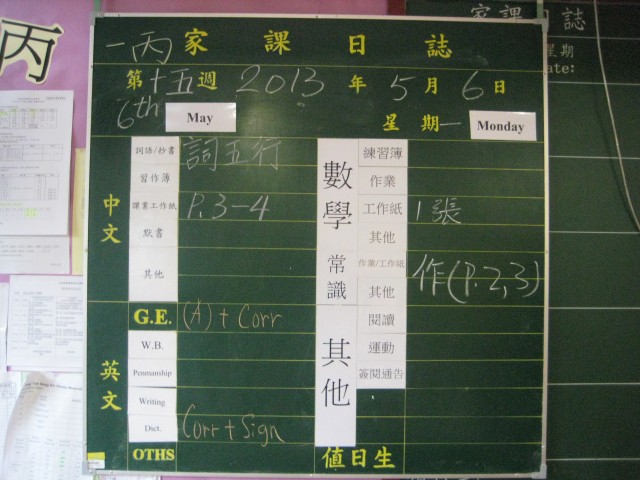 丙
一丙 家課日誌
第十五週 2013年5月6日
6th May 星期一 Monday
中文
詞語/抄書 詞五行
習作簿
課業工作紙 P.3-4
默書
其他
英文
G.E. (A) + Corr
W.B.
Penmanship
Writing
Dict. Corr + Sign
OTHS
數學
練習簿
作業
工作紙 1張
其他
常識
作業/工作紙 作(P.2,3)
其他
其他
閱讀
運動
簽閱通告
值日生
家課日誌
星期
ate: